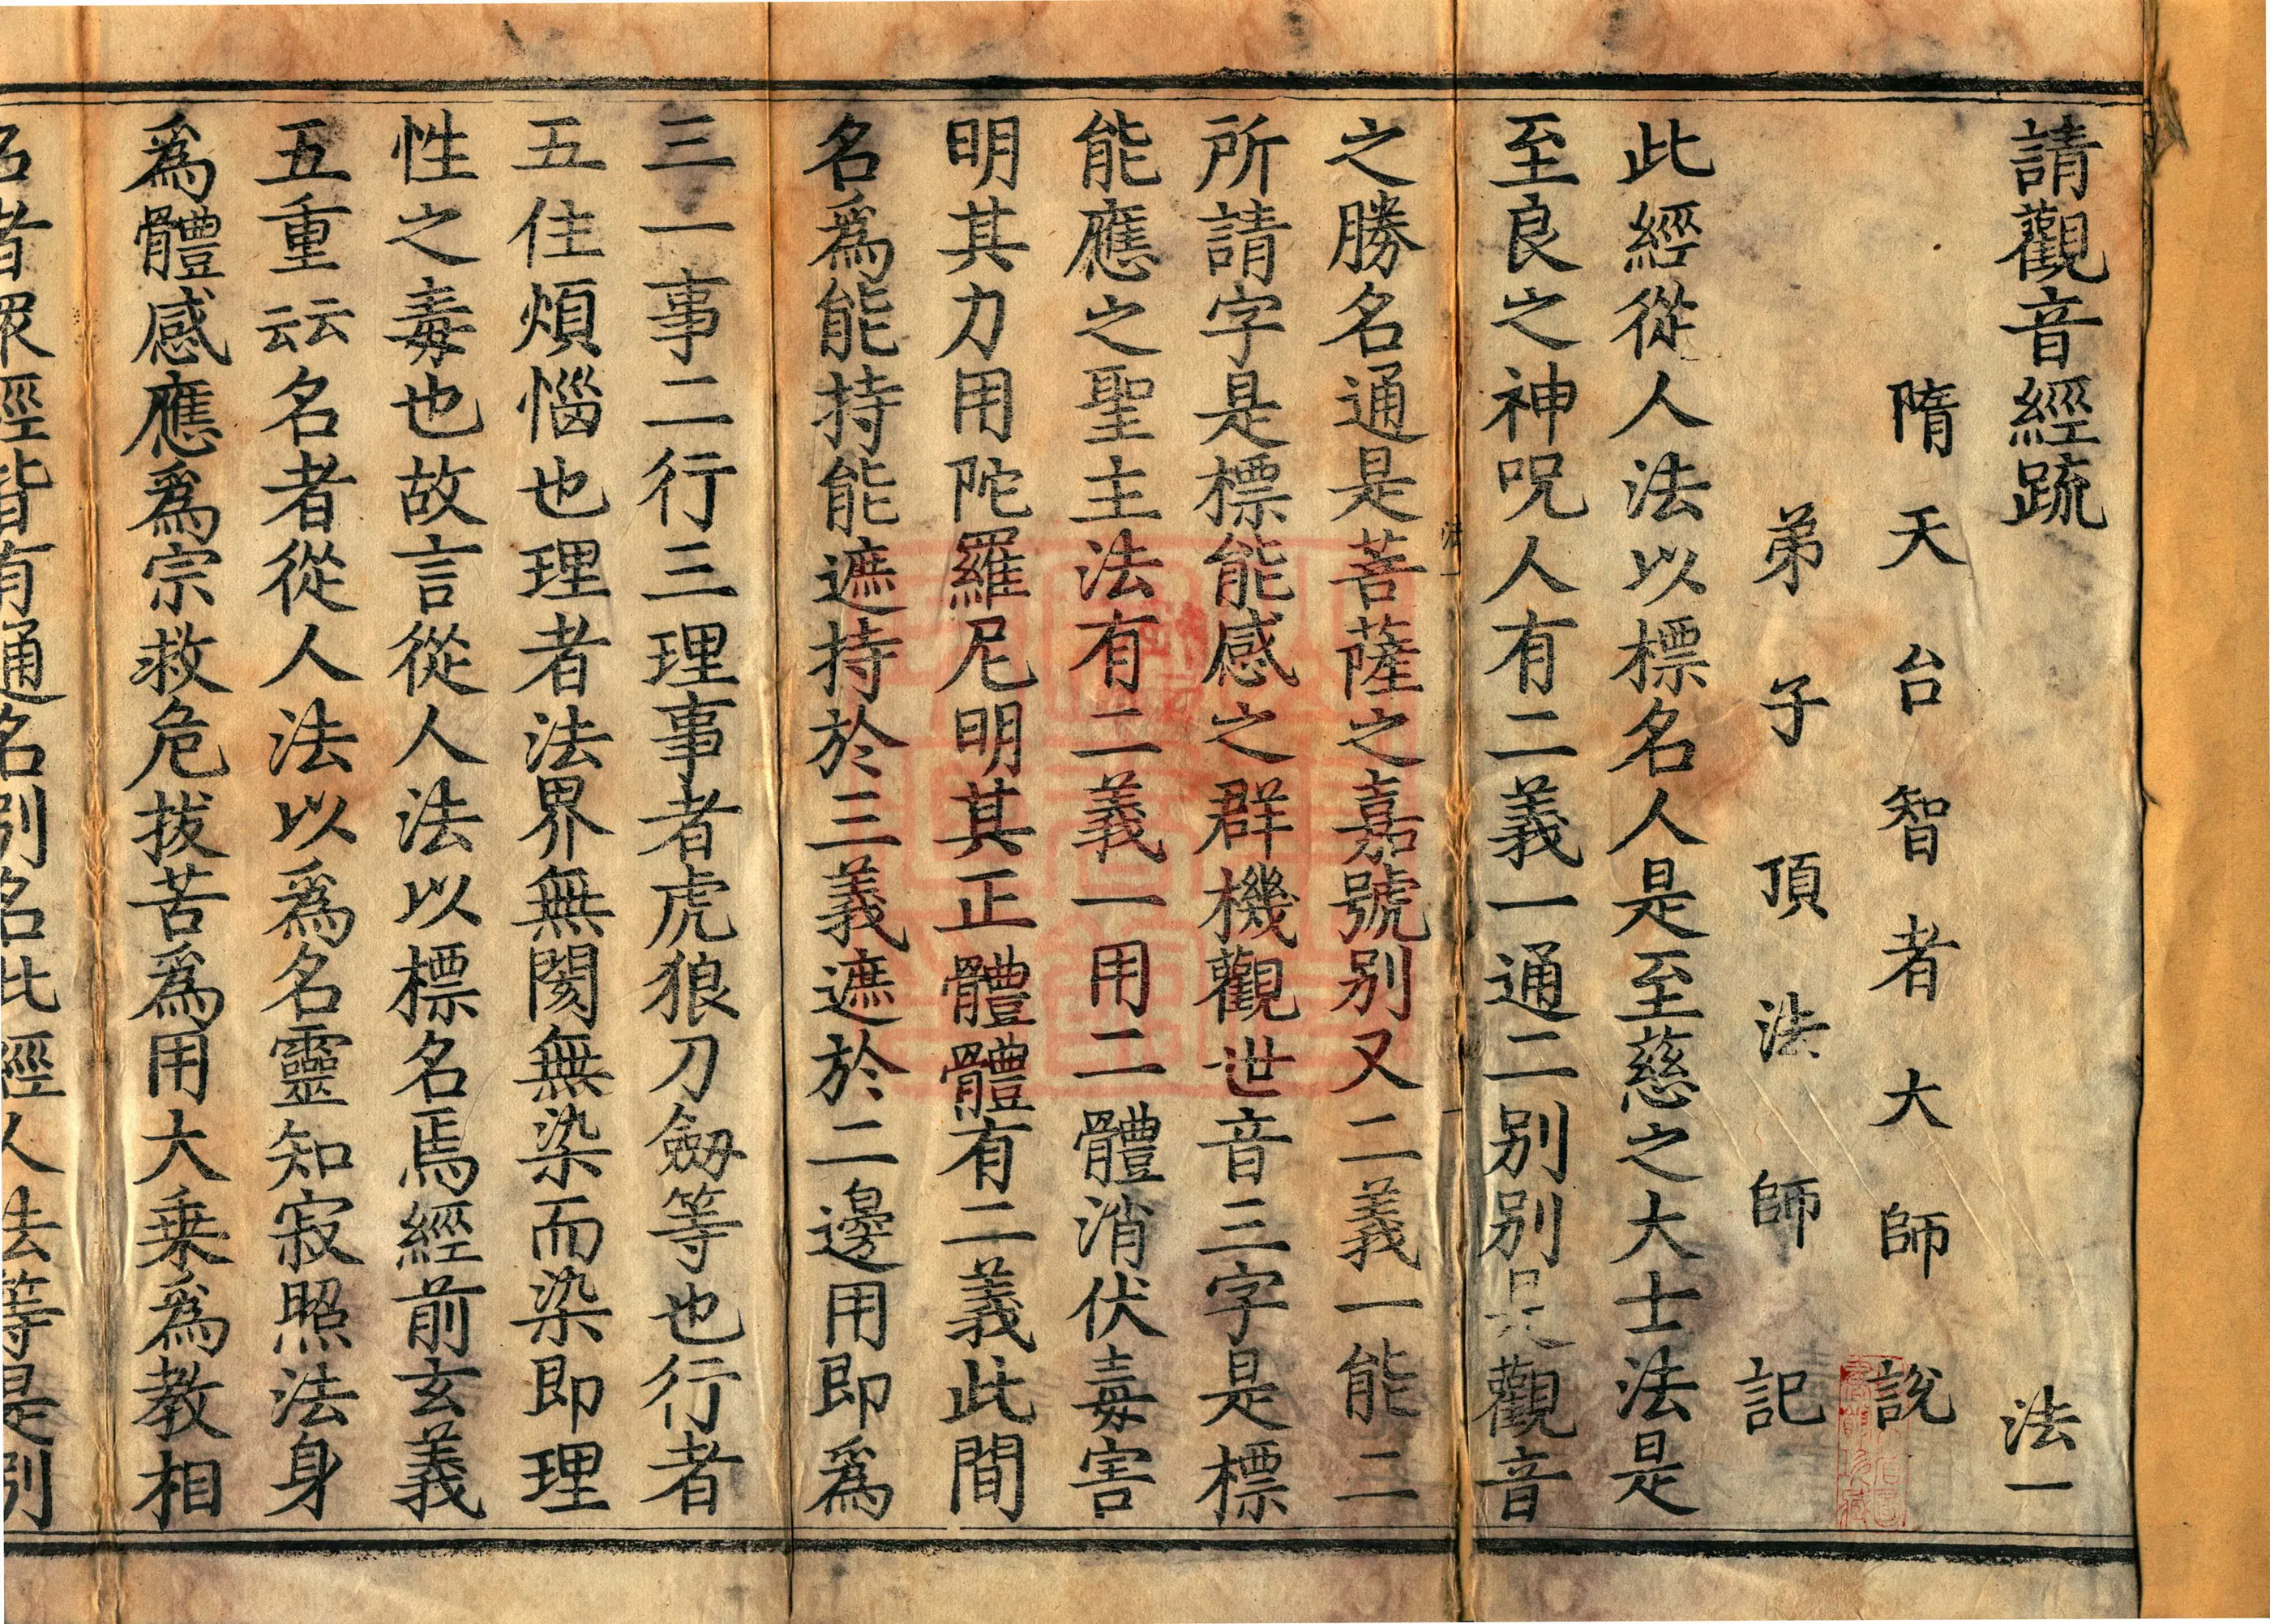 請觀音經疏 法一
隋天台智者大師說
弟子頂法師記
此經從人法以標名人是至慈之大士法是
至良之神呪人有二義一通二別別是觀音
之勝名通是菩薩之嘉號別又二義一能二
所請字是標能感之群機觀世音三字是標
能應之聖主法有二義一用二體消伏毒害
明其力用陀羅尼明其正體體有二義此間
名爲能持能遮持於三義遮於二邊用即爲
三一事二行三理事者虎狼刀劒等也行者
五住煩惱也理者法界無閡無染而染即理
性之毒也故言從人法以標名焉經前玄義
五重云云名者從人法以爲名靈知寂照法身
爲體感應爲宗救危拔苦爲用大乗爲教相
名者衆經皆有通名別名此經人法等是別